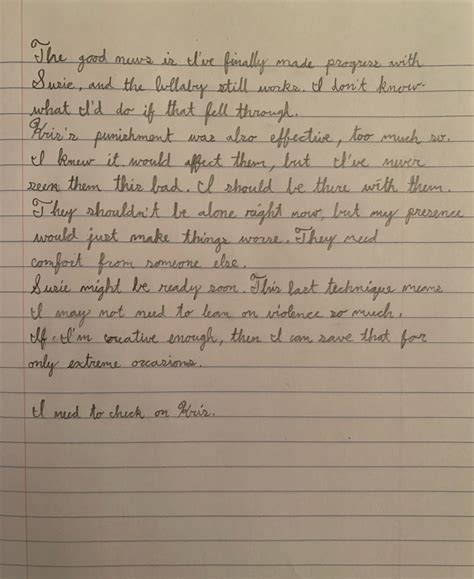 The good news is I've finally made progress with
Susie, and the lullaby still works. I don't know
what I'd do if that fell through.
Kris's punishment was also effective, too much so.
I knew it would affect them, but I've never
seen them this bad. I should be there with them.
They shouldn't be alone right now, but my presence
would just make things worse. They need
comfort from someone else.
Susie might be ready soon. This last technique means
I may not need to lean on violence so much.
If I'm creative enough, then I can save that for
only extreme occasions.
I need to check on Kris.